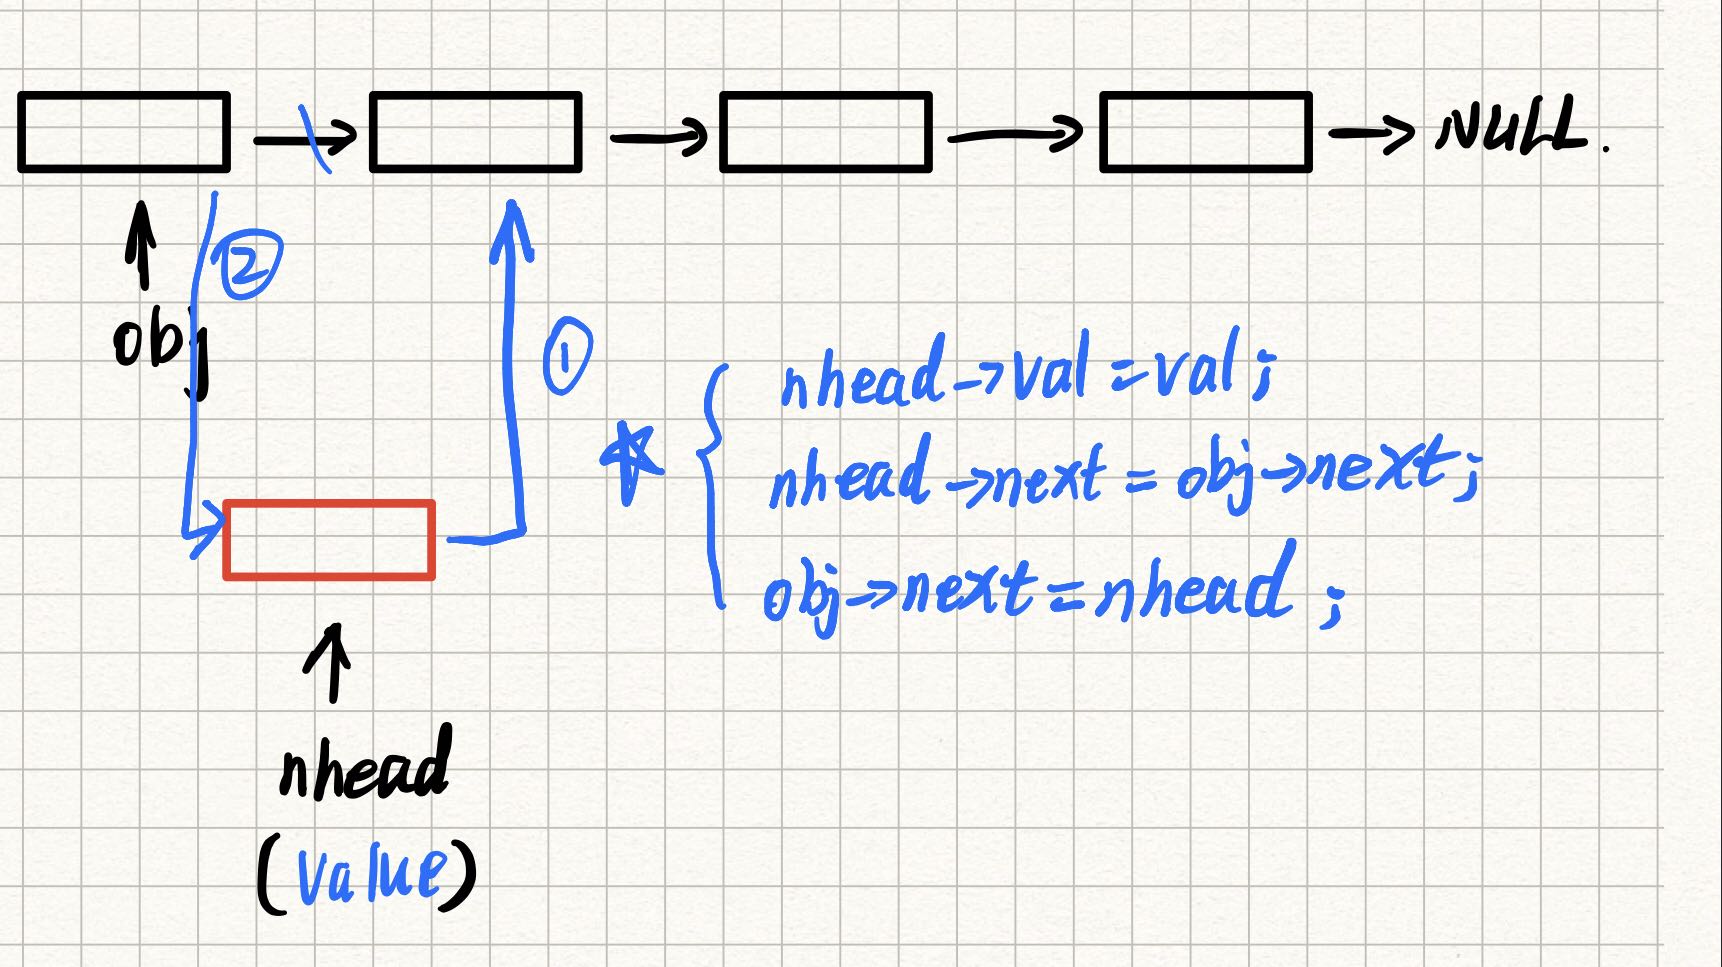 NULL.
obj
②
①
nhead->val=val;
nhead->next=obj->next;
obj->next=nhead;
nhead
(value)